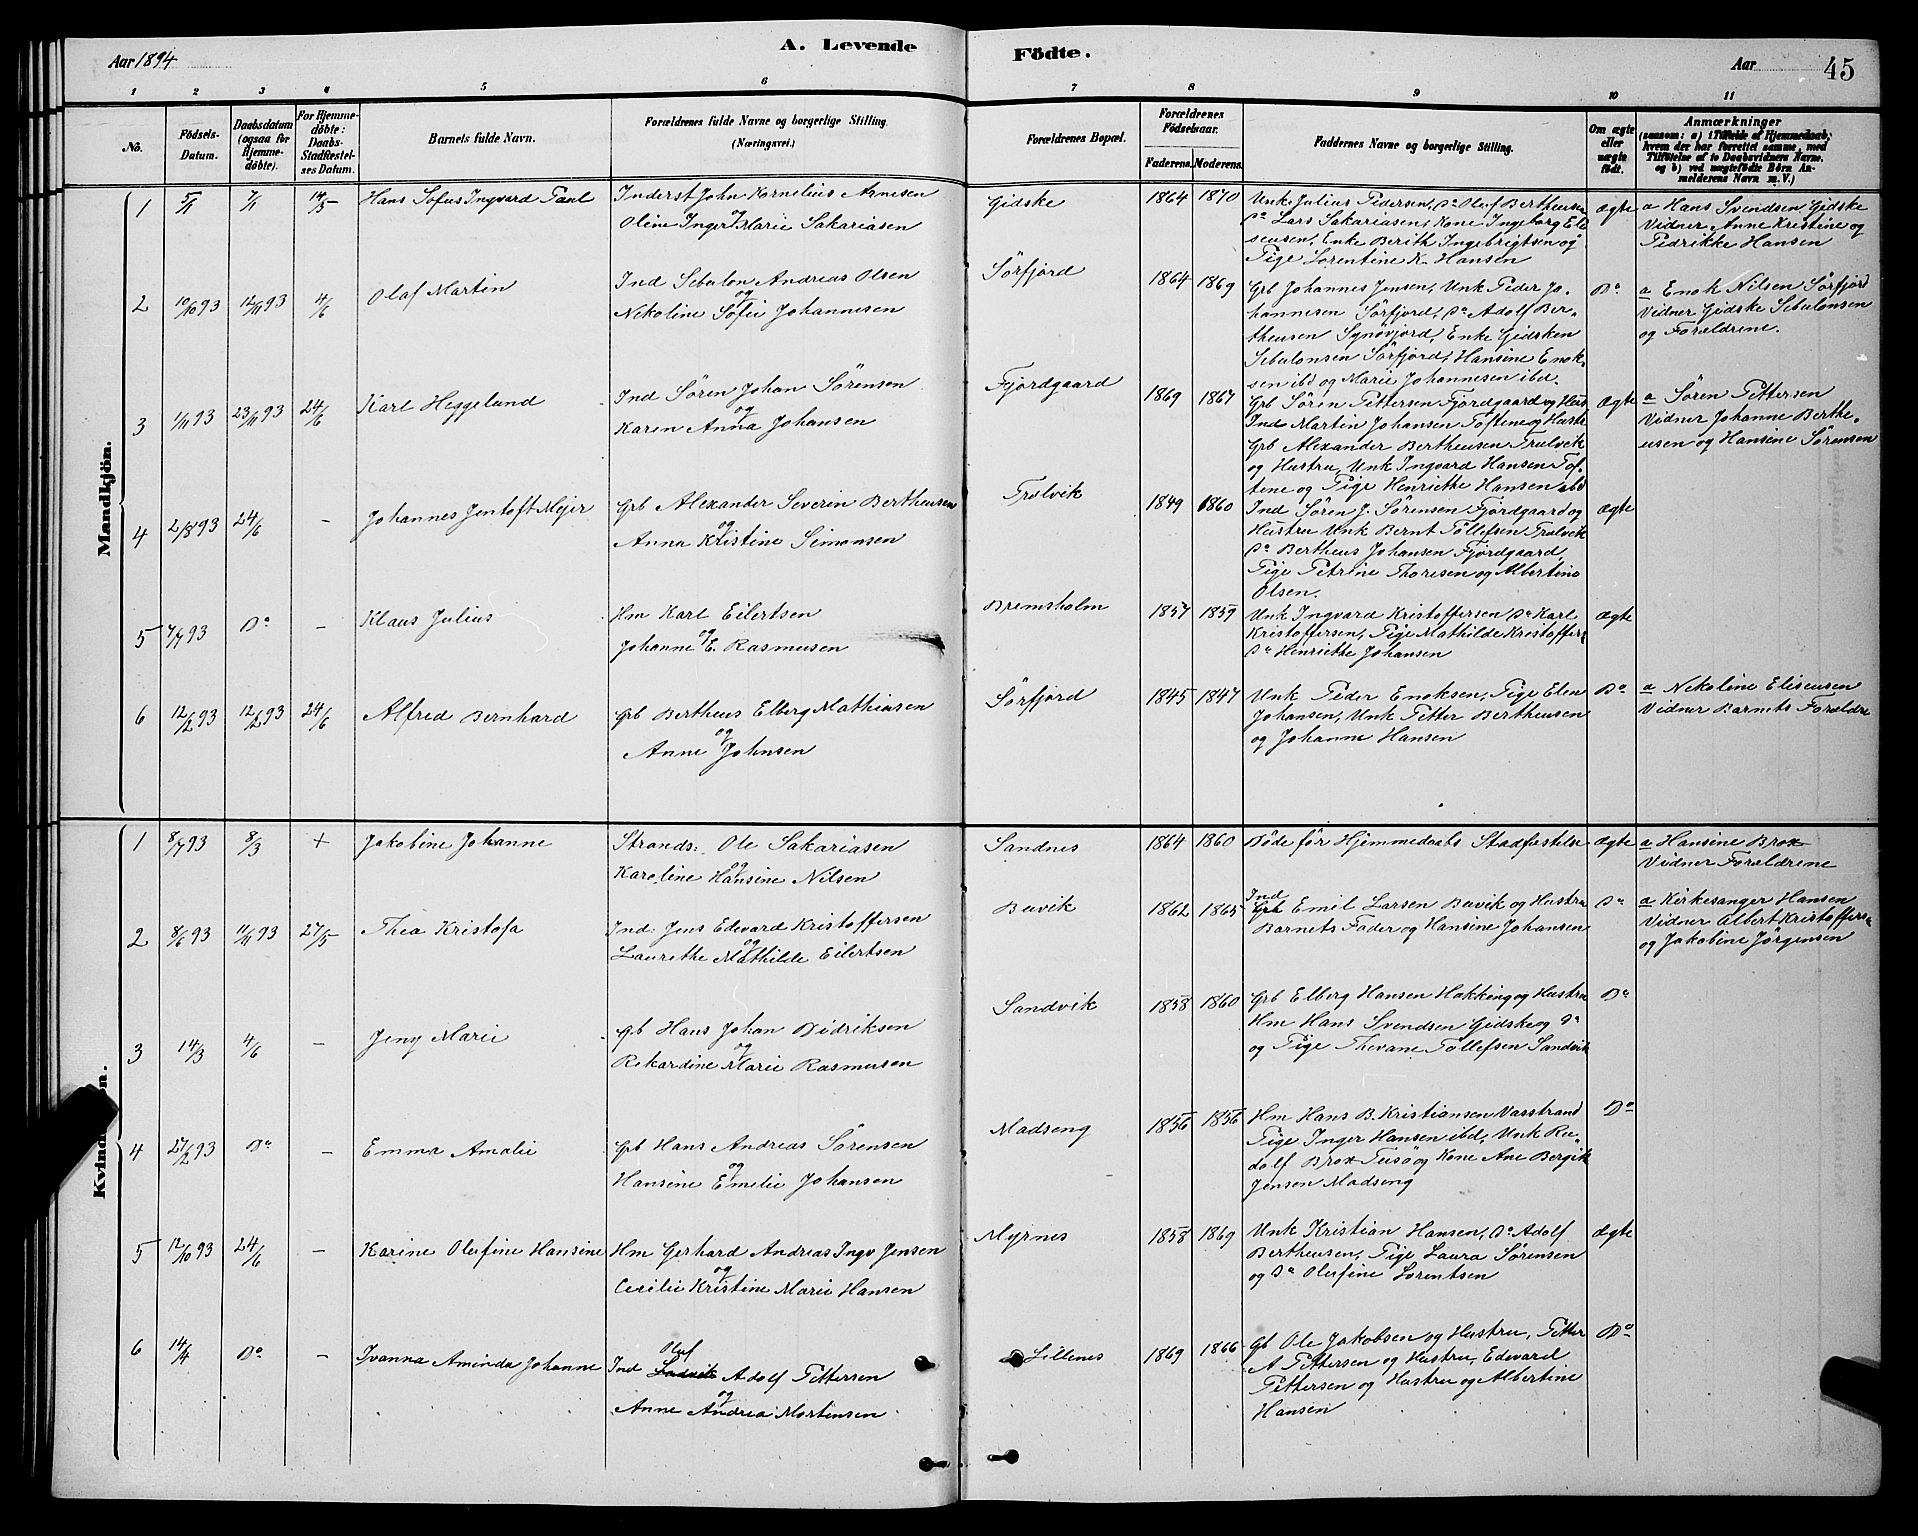 Aar 1894
A. Levende
Födte.
Aar
45
1 2 3 4 5 6 7 8 9 10 11
No.
Födsels-
Datum.
Daabsdatum
(ogsaa for
Hjemme-
döbte).
For Hjemme-
döbte:
Daabs-
Stadfæstel-
ses Datum.
Barnets fulde Navn.
Forældrenes fulde Navne og borgerlige Stilling.
(Næringsvei.)
Forældrenes Bopæl.
Forældrenes
Födselsaar.
Faderens. Moderens.
Faddernes Navne og borgerlige Stilling.
Om ægte
eller
uægte
födt.
Anmærkninger
(saasom: a) i Tilfælde af Hjemmedaab;
hvem der har forrettet samme, med
Tilföielse af to Daabsvidners Navne,
og b) ved uægtefödte Börn An-
melderens Navn m. V.)
Mandkjön.
1 5/1 7/1 14/5 Hans Sofus Ingvard Paul
Inderst John Kornelius Arnesen
og
Oline Inger Marie Sakariasen
Gidske
1864 1870
Unk Julius Pedersen, Do Oluf Bertheusen
Do Lars Sakariasen, Kone Ingeborg Eli
seusen, Enke Berith Ingebrigtsen og
Pige Lorentine K. Hansen
Ægte
a Hans Svendsen Gidske
Vidner Anne Kristine og
Pedrikke Hansen
2 10/10 93 12/11 93 4/6 Olaf Martin
Ind Sebulon Andreas Olsen
og
Nikoline Sofie Johannesen
Sörfjord
1864 1869
Grb Johannes Jensen, Unk Peder Jo-
hannesen Sörfjord, Do Adolf Ber-
theusen Synövjord, Enke Gidsken
Sebulonsen Sörfjord, Hansine Enok-
sen ibd og Marie Johannesen ibd.
Do
a Enok Nilsen Sörfjord
Vidner Gidske Sebulonsen
og Forældrene.
3 1/11 93 23/11 93 24/6 Karl Heggelund
Ind Sören Johan Sörensen
og
Karen Anna Johansen
Fjordgaard
1869 1867
Grb Sören Pettersen Fjordgaard og Hust
Ind Martin Johansen Toftene og Hustr
Grb Alexander Bertheusen Trælvik
og Hustru, Unk Ingvard Hansen Tof-
tene og Pige Henriethe Hansen ibd
Ægte
a Sören Pettersen
Vidner Johanne Berthe-
usen og Hansine Sörensen
4 2/8 93 24/6 - Johannes Jentoft Mejer
Grb Alexander Severin Bertheusen
og
Anna Kristine Simonsen
Trælvik
1849 1860
Ind Sören J. Sörensen Fjordgaard og
Hustru Unk Bernt Töllefsen Trælvik
Do Bertheus Johansen Fjordgaard,
Pige Petrine Thoresen og Albertine
Olsen.
Ægte
5 7/7 93 Do - Klaus Julius
Hm Karl Eilertsen
og
Johanne E. Rasmusen
Bremsholm
1857 1859
Unk Ingvard Kristoffersen Do Karl
Kristoffersen, Pige Mathilde Kristoffers
Do Henriethe Johansen
Ægte
6 12/2 93 12/2 93 24/6 Alfred Bernhard
Grb Bertheus Elberg Mathiasen
og
Anne Johnsen
Sörfjord
1845 1847
Unk Peder Enoksen, Pige Elen
Johansen, Unk Petter Bertheusen
og Johanne Hansen
Do
a Nikoline Eliseusen
Vidner Barnets Forældre
Kvindekjön.
1 8/7 93 8/3 + Jakobine Johanne
Strands: Ole Sakariasen
og
Karoline Hansine Nilsen
Sandnes
1864 1860
Döde för Hjemmedaabs Stadfæstelse
Ægte
a Hansine Brox
Vidner Forældrene
2 8/6 93 11/11 93 27/5 Thea Kristofa
Ind: Jens Edevard Kristoffersen
og
Laurethe Mathilde Eilertsen
Buvik
1862 1865
Ind
Grb Emil Larsen Buvik og Hustru
Barnets Fader og Hansine Johansen
Do
a Kirkesanger Hansen
Vidner Albert Kristoffers-
og Jakobine Jörgensen
3 14/3 4/6 - Jeny Marie
Gb Hans Johan Didriksen
og
Rikardine Marie Rasmusen
Sandvik
1858 1860
Grb Elberg Hansen Hakking og Hustru
Hm Hans Svendsen Gidske og Do
og Pige Thevane Tollefsen Sandvik
Do
4 27/2 93 Do - Emma Amalie
Grb Hans Andreas Sörensen
og
Hansine Emelie Johansen
Madseng
1856 1856
Hm Hans B. Kristiansen Vasstrand
Pige Inger Hansen ibd, Unk Ru-
dolf Brox Tusö og Kone Ane Bergith
Jensen Madseng
Do
5 12/10 93 24/6 - Karine Olufine Hansine
Hm Gerhard Andreas Ingv Jensen
og
Cecilie Kristine Marie Hansen
Myrnes
1858 1869
Unk Kristian Hansen, Do Adolf
Bertheusen, Pige Laura Sörensen
og Do Olufine Lorentsen
Ægte
6 14/4 Do - Ivanna Aminda Johanne
Oluf
Ind Ludvik Adolf Pettersen
og
Anne Andrea Mortensen
Lillenes
1869 1866
Gb Ole Jakobsen og Hustru, Petter
A Pettersen og Hustru, Edevard
Pettersen og Hustru og Albertine
Hansen
Do